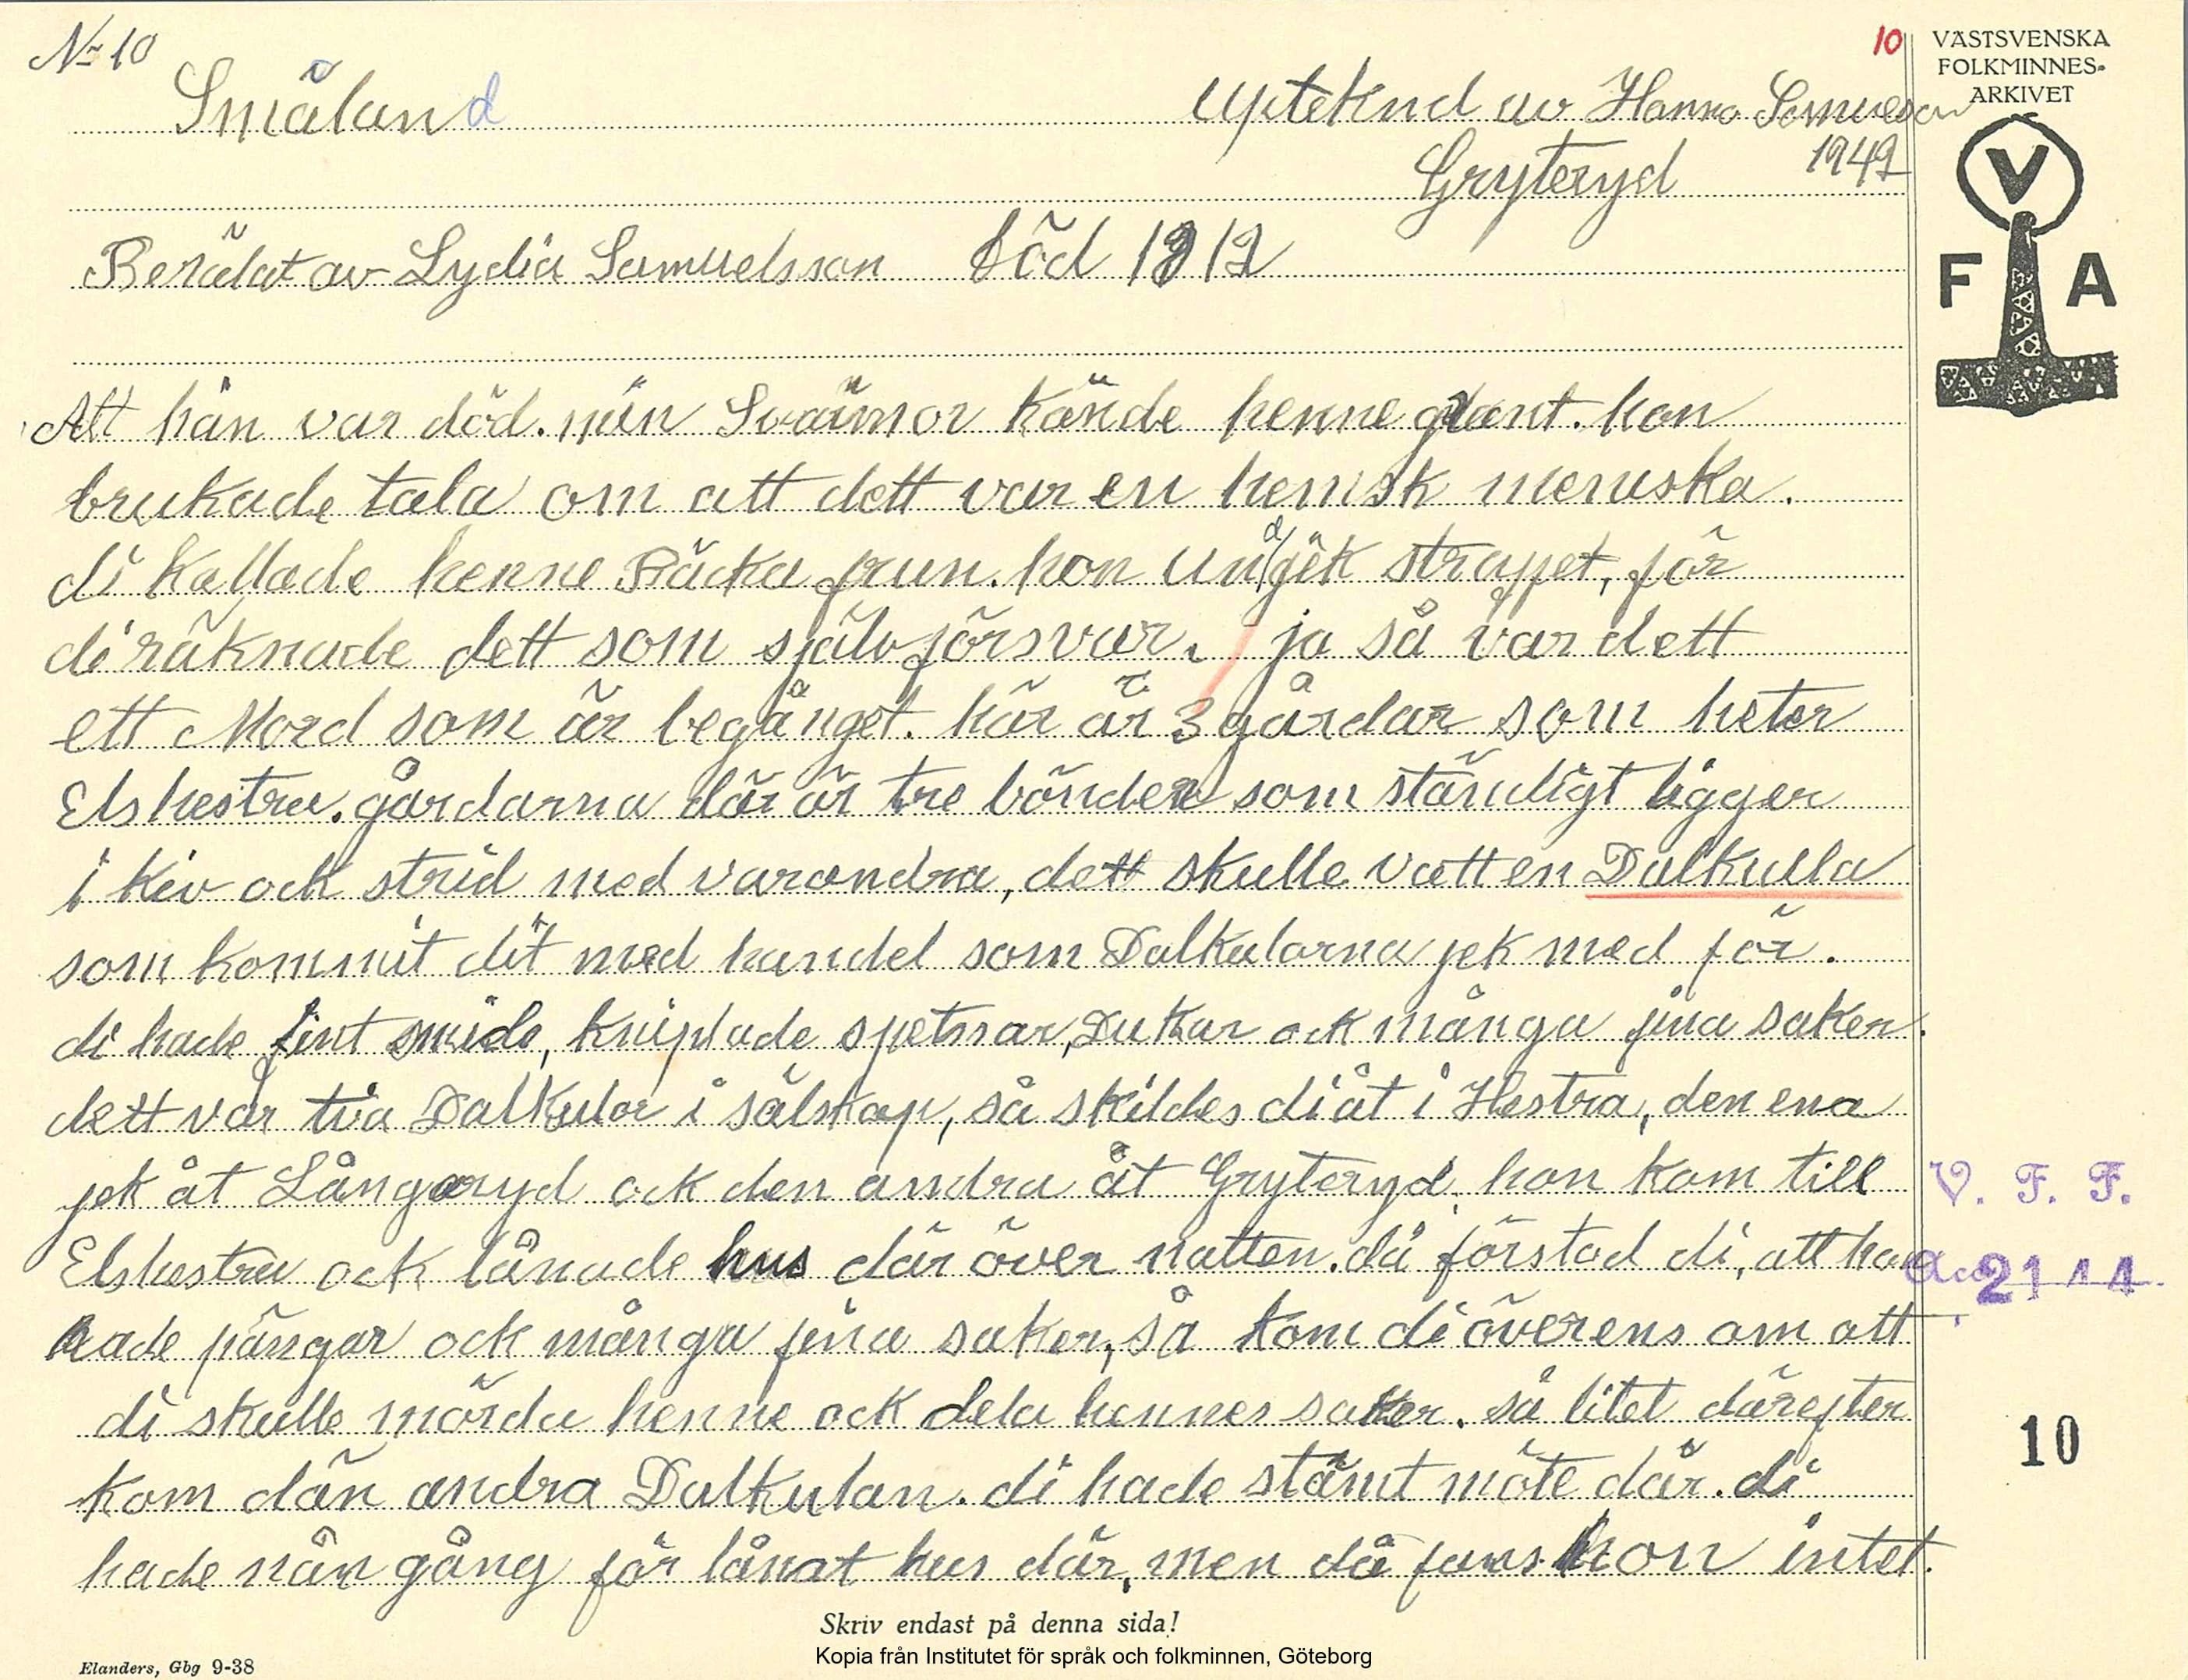 № 10
10
VÄSTSVENSKA
FOLKMINNES-
ARKIVET
Småland
Upteknd av Hanna Samuelson
Gryteryd
1942
Berälat av Lydia Samuelsson föd 1812
V
F A
Att hän var död. min Svärmor kände henne grant. hon
brukade tala om att dett var en hemsk meniska.
di kallade henne Bäcka frun. hon undgek straffet, för
di räknade dett som självförsvar. ja så var dett
ett Mord som är begånget. här är 3 gårdar som heter
Elshestra. gårdarna där är tre bönder som ständigt ligger
i kiv ock strid med varandra, dett skulle vatt en Dalkulla
som kommit dit med handel som Dalkularna jek med för.
di hade fint smide, kniplade spetssar, Dukar ock många fina saker.
dett var två Dalkulor i sälskap, så skildes di åt i Hestra, den ena
jek åt Långaryd ock den andra åt Gryteryd. hon kom till
Elshestra ock lånade hus där över natten. då förstod di, att hon
hade pängar ock många fina saker, så kom di överens om att
di skulle mörda henne ock dela hennes saker. så litet därefter
kom dän andra Dalkulan. di hade stämt möte där. di
hade nån gång för lånat hus där, men då fans hon intet.
V. F. F.
Acc 2144
10
Skriv endast på denna sida!
Kopia från Institutet för språk och folkminnen, Göteborg
Elanders, Gbg 9-38